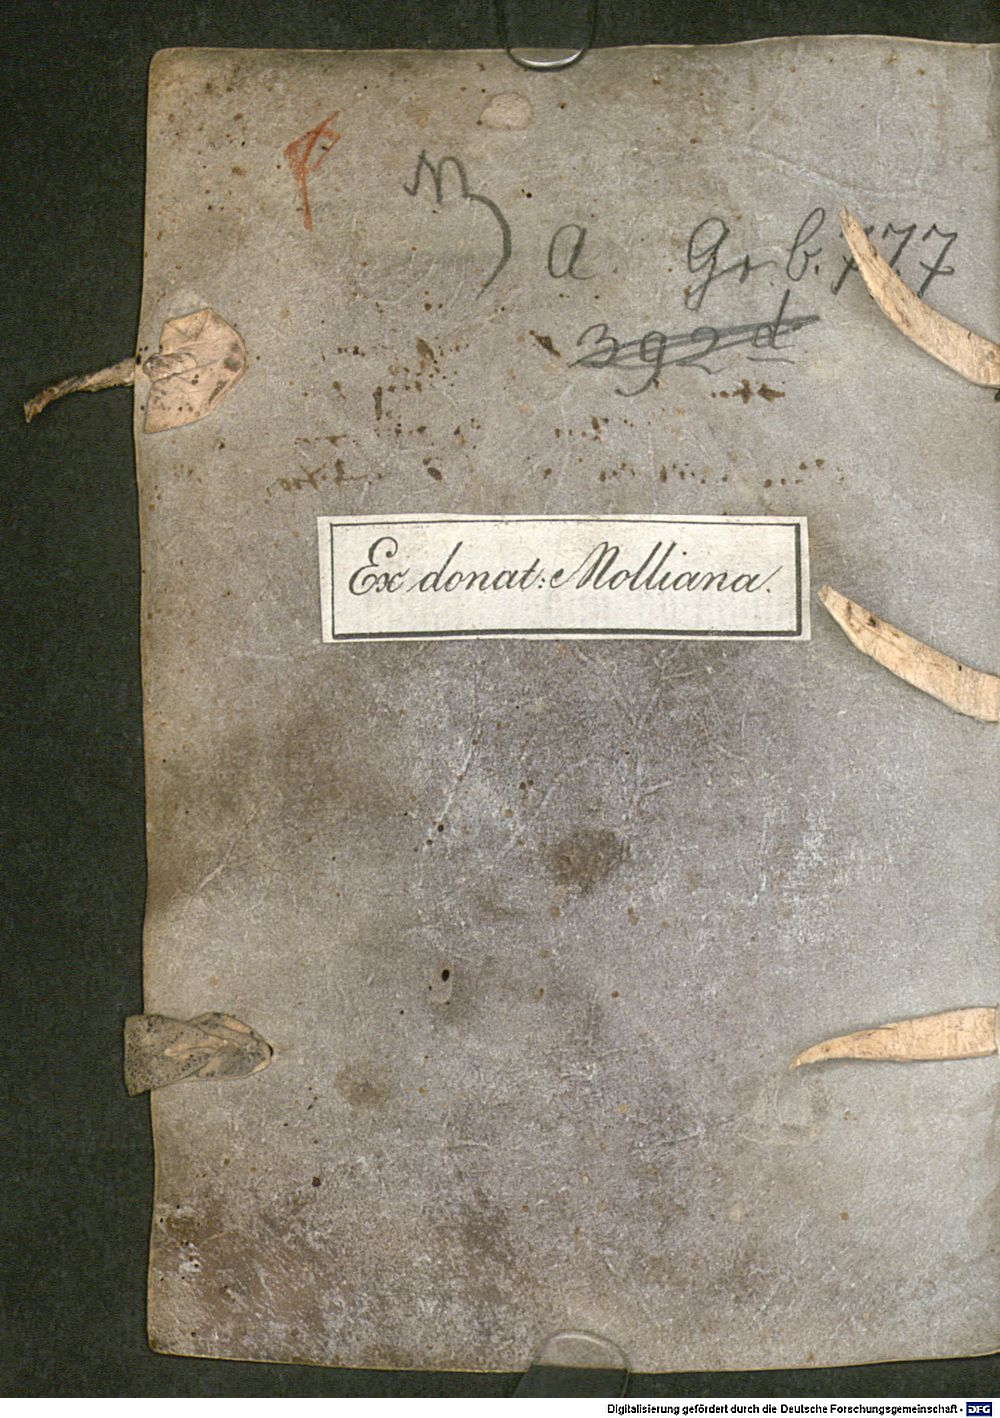 a. Gr. b. 777
392 d
Ex donat: Molliana.
Digitalisierung gefördert durch die Deutsche Forschungsgemeinschaft - DFG